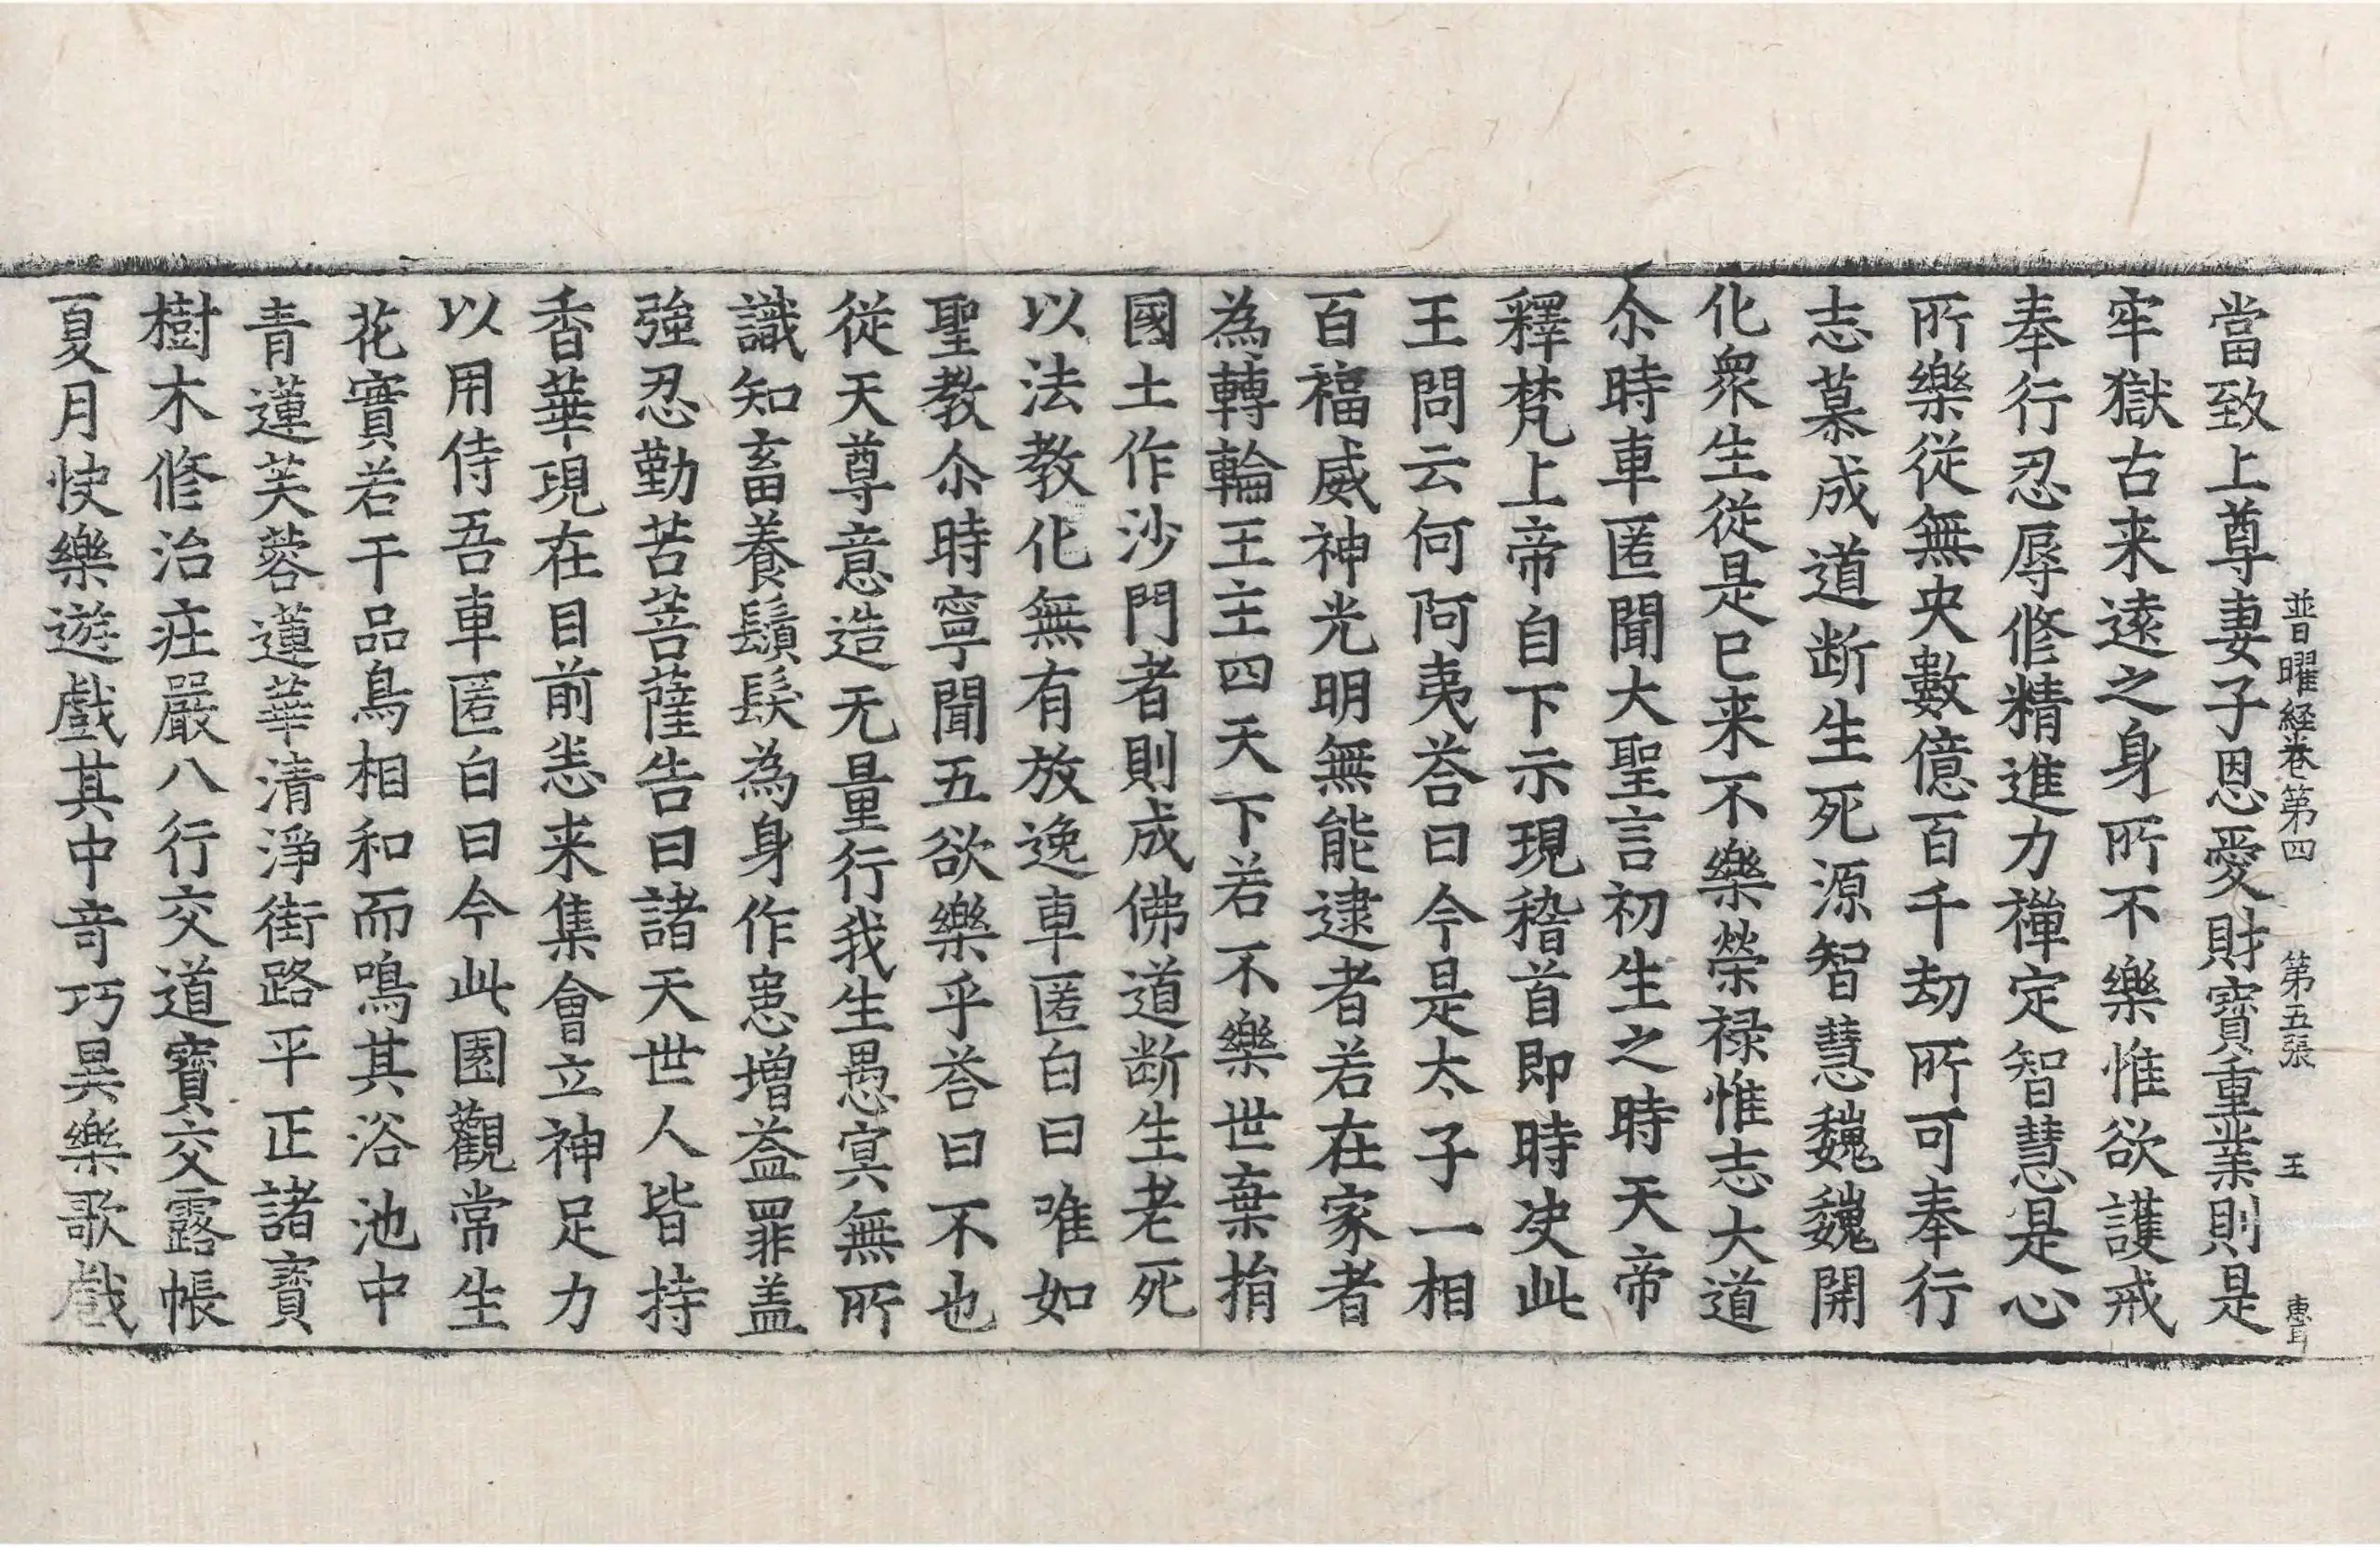 普曜経卷第四　第五張　王
當致上尊妻子恩愛財寶重業則是
牢獄古来逺之身所不樂惟欲護戒
奉行忍辱修精進力禪定智慧是心
所樂從無央數億百千劫所可奉行
志慕成道断生死源智慧巍巍開
化衆生從是已来不樂榮禄惟志大道
尒時車匿聞大聖言初生之時天帝
釋梵上帝自下示現稽首即時决此
王問云何阿夷荅曰今是太子一相
百福威神光明無能逮者若在家者
為轉輪王主四天下若不樂世棄捐
國土作沙門者則成佛道断生老死
以法教化無有放逸車匿白曰唯如
聖教尒時寧聞五欲樂乎荅曰不也
從天尊意造无量行我生愚冥無所
識知畜養鬚髮為身作患增益罪盖
強忍勤苦菩薩告曰諸天世人皆持
香華現在目前恙来集會立神足力
以用侍吾車匿白曰今此園觀常生
花實若干品鳥相和而鳴其浴池中
青蓮芙蓉蓮華清淨街路平正諸寶
樹木修治庄嚴八行交道寶交露帳
夏月快樂遊戲其中竒巧異樂歌戲